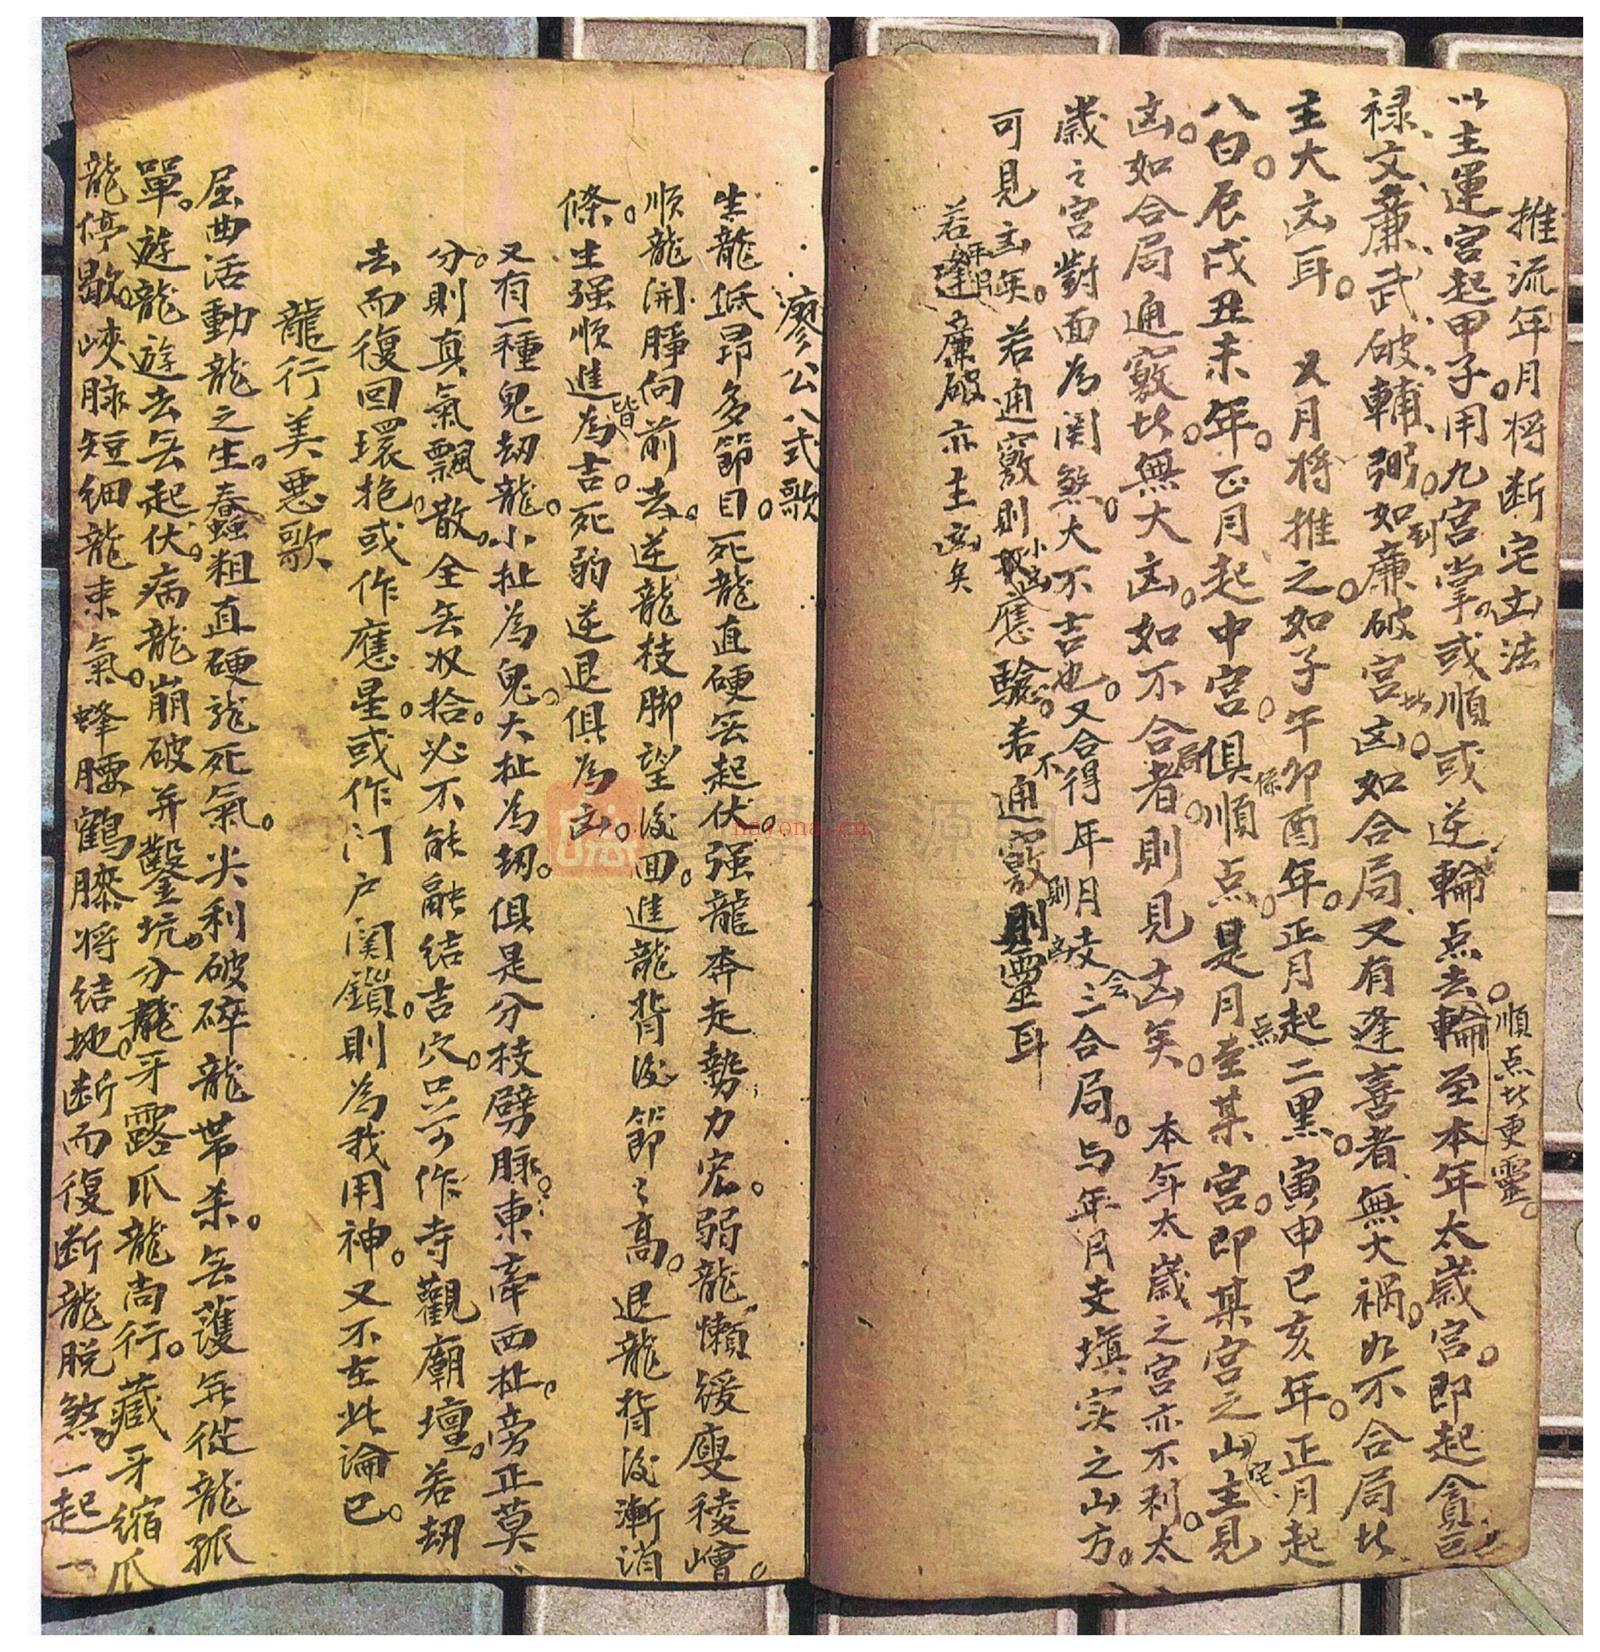 推流年月将断宅凶法
以主運宮起甲子用九宮掌或順或逆輪点去輪至本年太歲宮即起貪巨
順点此更靈
禄文廉武破輔弼如到廉破宮此凶如合局又有逢喜者無大禍如不合局此
主大凶耳 又月将推之如子午卯酉年正月起二黑寅申巳亥年正月起
八白辰戌丑未年正月起中宮俱順点是月点至某宮即某宮之山宅主見
凶如合局通竅此無大凶如不合局者則見凶矣 本年太歲之宮亦不利太
歲之宮對面為関煞大不吉也又合得年月支三合局与年月支填实之山方
可見凶矣若通竅則小凶應驗若不通竅則靈耳
若逢年月廉破亦主凶矣
廖公八式歌
生龍低昂多節目死龍直硬無起伏强龍奔走勢力宏弱龍懶緩廋稜嶒
順龍開睜向前去逆龍枝脚望後回進龍背後節々高退龍背後漸消
條生强順進皆為吉死弱逆退俱為凶
又有一種鬼劫龍小扯為鬼大扯為劫俱是分枝劈脉東牽西扯旁正莫
分則真氣飄散全無收拾必不能融結吉穴只可作寺觀廟壇若劫
去而復回環抱或作應星或作门户関鎖則為我用神又不在此論已
龍行美惡歌
屈曲活動龍之生蠢粗直硬龍死氣尖利破碎龍帶杀無護無從龍孤
單遊龍遊去無起伏病龍崩破并鑿坑分龍牙露爪龍尚行藏牙縮爪
龍停歇峽脉短細龍束氣蜂腰鶴膝将結地断而復断龍脱煞一起一